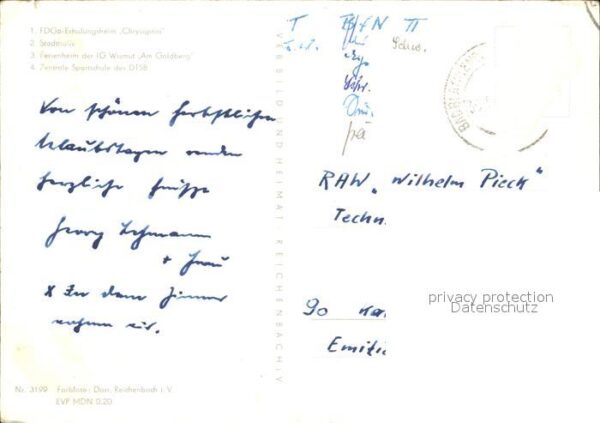 1. FDGB-Erholungsheim „Chrysopras"
2. Stadtcafé
3. Ferienheim der IG Wismut „Am Goldberg"
4. Zentrale Sportschule des DTSB
Von schönen herbstlichen
Urlaubstagen senden
herzliche Grüße
Georg Lehmann
+ Frau
X In dem Zimmer
wohnen wir.
Nr. 3199 Farbfoto: Darr, Reichenbach i. V.
EVP MDN 0.20
VEB BILD UND HEIMAT · REICHENBACH i. V.
T BfN II
Schw.
RAW „Wilhelm Pieck"
Techn.
90
privacy protection
Datenschutz